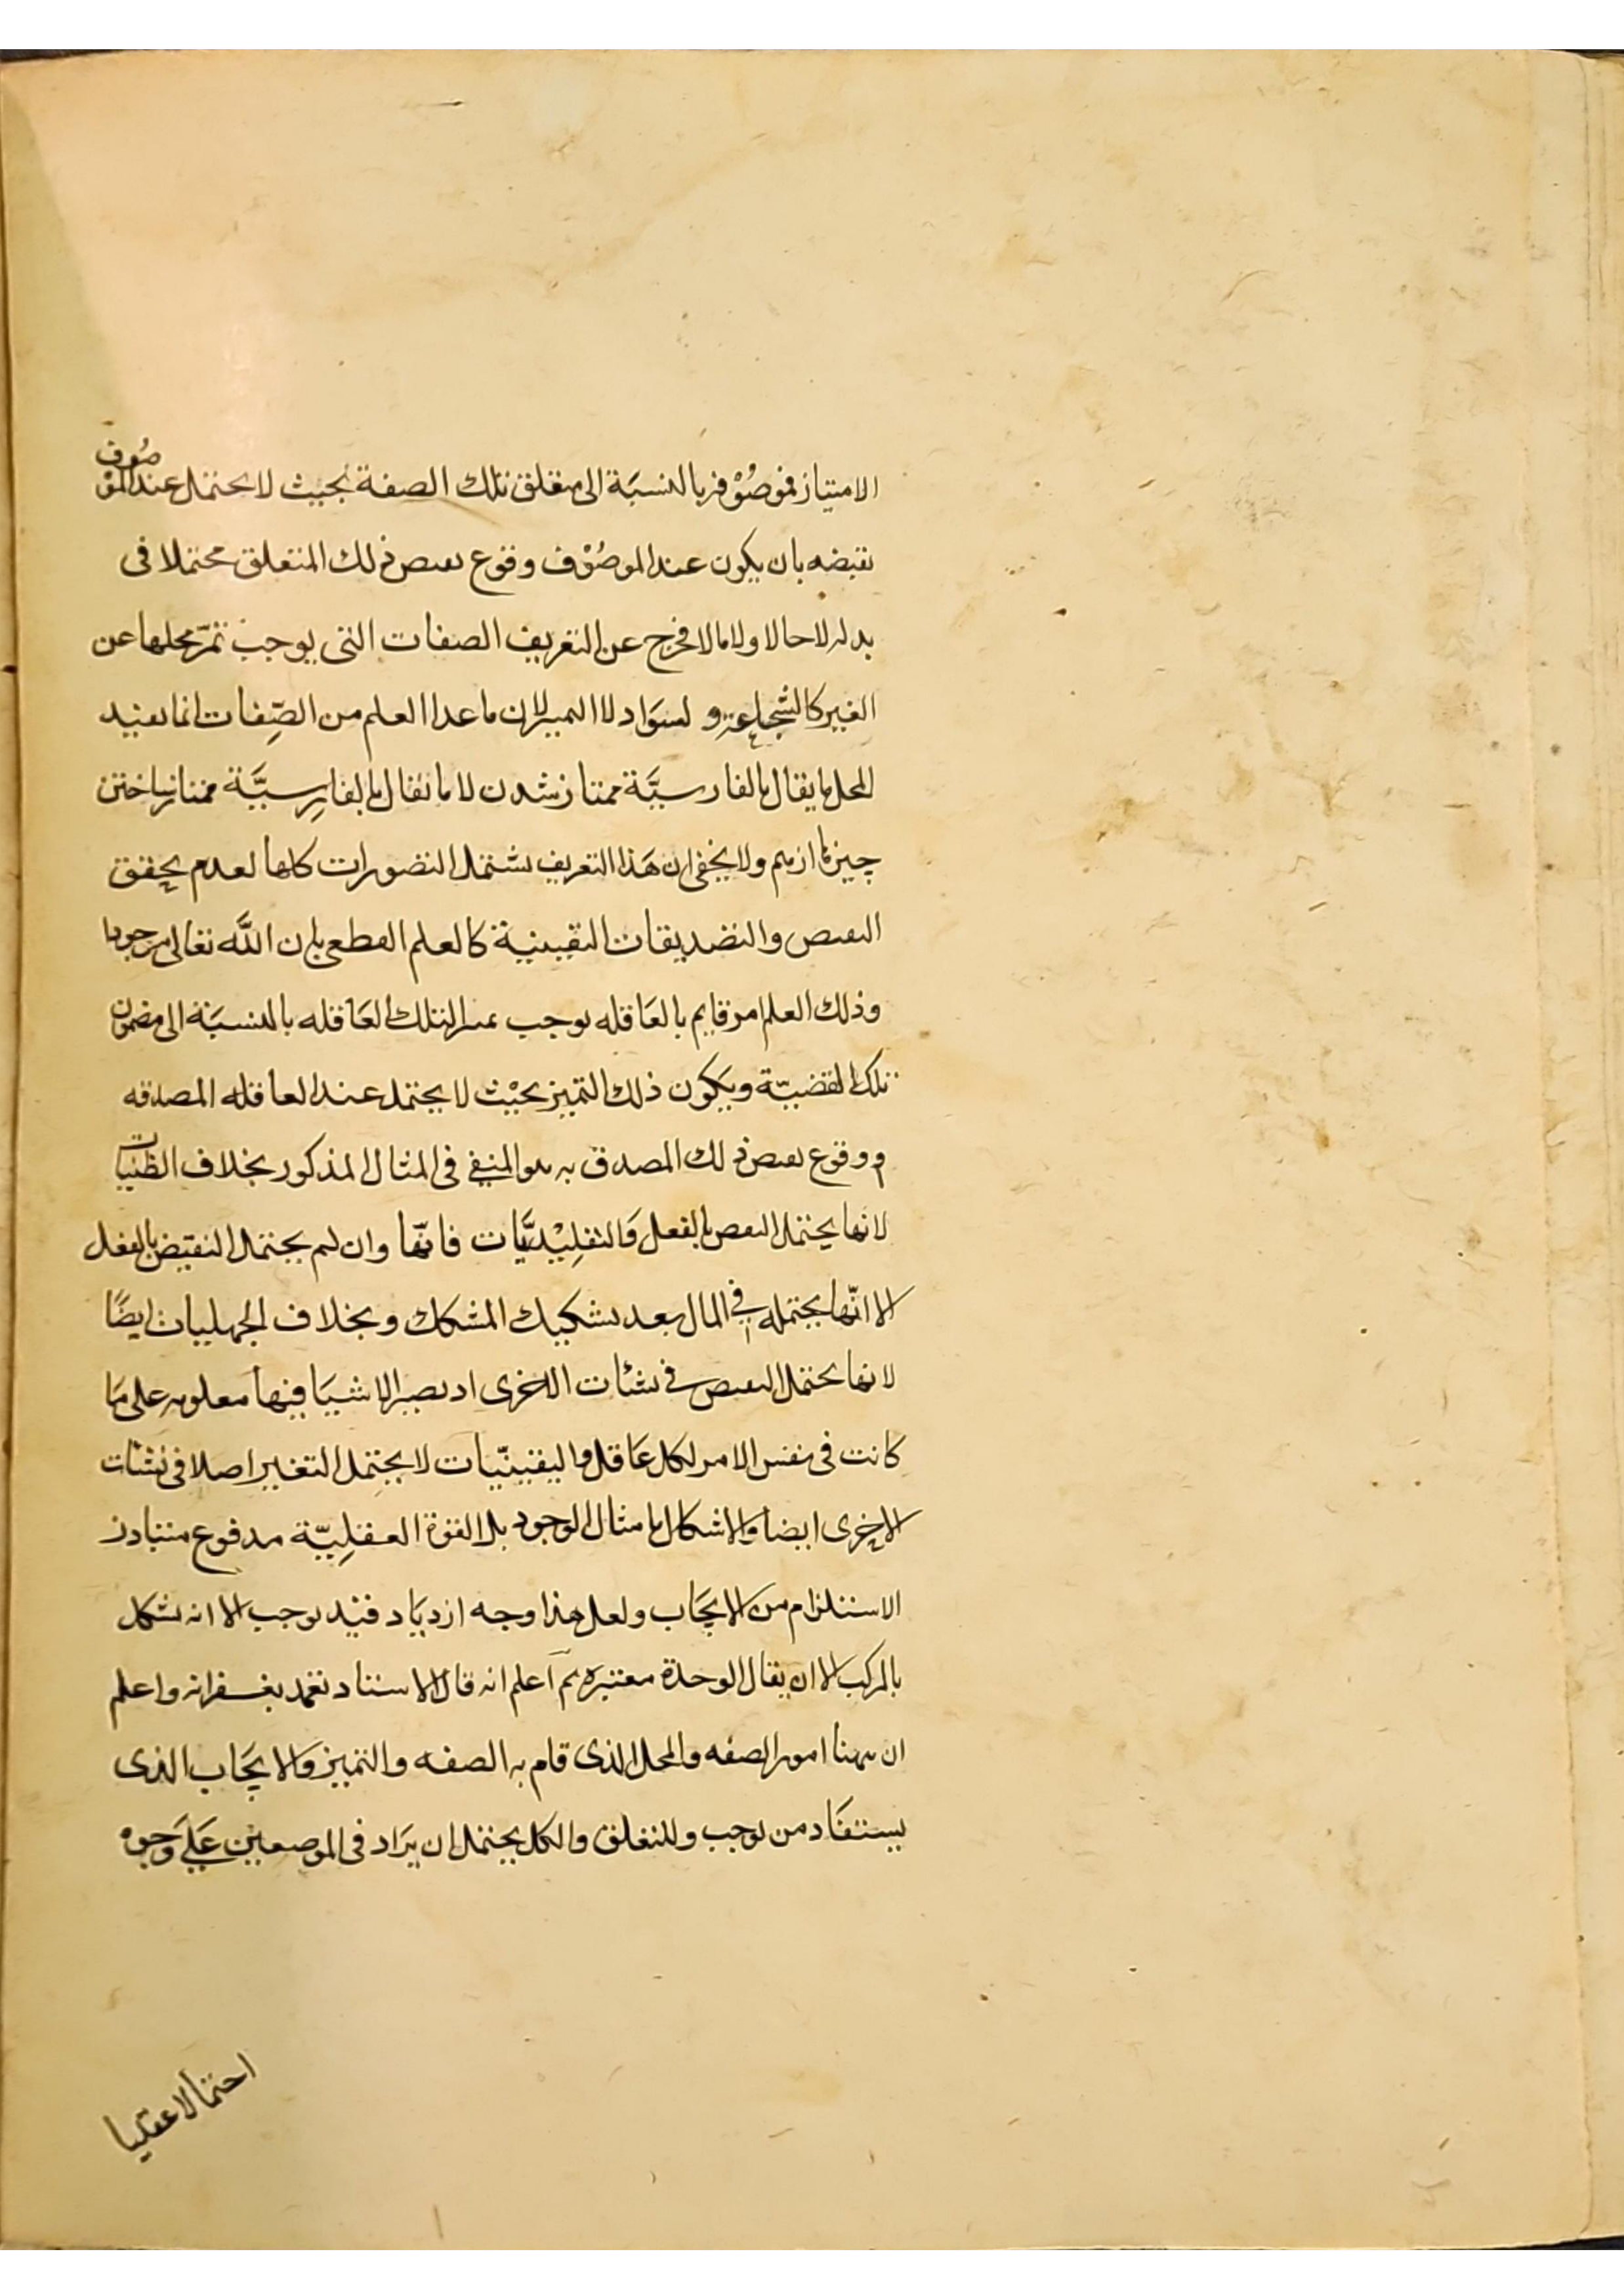 الامتياز فموصُوْفه بالنسبَة الى متعلق تلك الصفة بحيث لا يحتمل عند الموصُوف
نقيضه بان يكون عند الموصُوْف وقوع نقيض ذلك المتعلق محتملا فى
بدله لا حالا ولا مالا فخرج عن التعريف الصفات التى يوجب تمزّ محلها عن
الغير كالشجاعة و لسَواد لا التميز لان ما عدا العلم من الصِّفات انما يفيد
المحل ما يقال بالفارسيَّة ممتاز شدن لا ما يقال بالفارِسيَّة ممتاز ساختن
چيز ولا يخفى ان هَذا التعريف يشتمل التصورات كلها لعدم تحقق
النقيض والتصديقات اليقينية كالعلم القطعى بان اللَّه تعالى موجود
وذلك العلم امر قايم بالعَاقله يوجب تميز التلك العَاقله بالنسبَة الى مضمون
تلك القضيّة ويَكون ذلك التميز بحيْث لا يحتمل عند العاقله المصدقه
وقوع نقيض ذلك المصدق به هو المنفى فى المثال المذكور بخلاف الظنيات
لانها يحتمل النقيض بالفعل وَالتقلِيْديَّات فانّها وان لم يحتمل النقيض بالفعل
الا انّها يحتمله فى المال بعد تشكيك المشكك وبخلاف الجهليات ايضًا
لانها يحتمل النقيض فى نشات الاخرى اذ يصير الاشيَا فيها معلومه على مَا
كانت فى نفس الامر لكل عَاقل واليقينيّات لا يحتمل التغير اصلا فى نشات
الاخرى ايضا والاشكال بامثال الوجود بلا القوة العقلِيّة مدفوع متبادر
الاستلزام من الايجَاب ولعل هذا وجه ازديَاد قيْد يوجب الا انه يشكل
بالمركب الا ان يقال الوحدة معتبرَه ثم اعلم انه قال الاستاد تغمد بغفرانه واعلم
ان ههنا امور الصفه والمحل الذى قام به الصفه والتميز وَالايجَاب الذى
يستفَاد من يوجب والمتعلق والكل يحتمل ان يرَاد فى الموضعين عَلى وَجوه
احتمالا عقليا